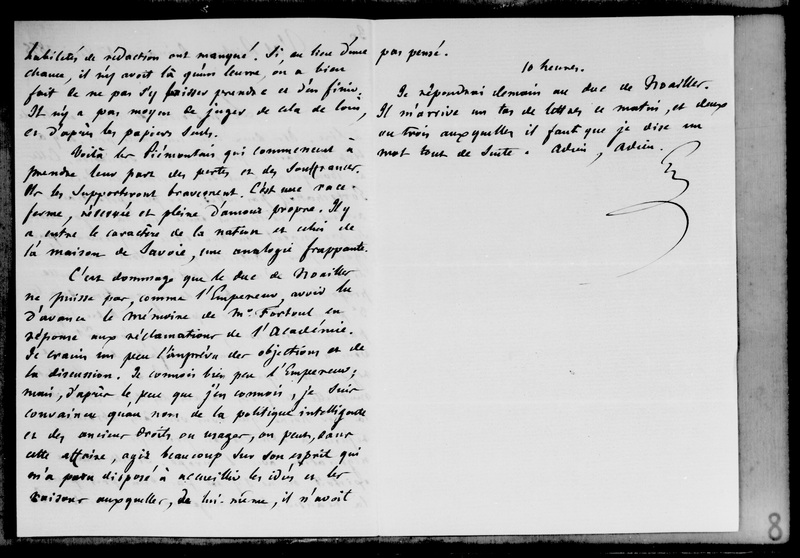 habiletés de rédaction ont manqué. Si au lieu d'une
chance, il n'y avoit là qu'un leurre, on a bien
fait de ne pas s'y laisser prendre et d'en finir.
Il n'y a pas moyen de juger de cela de loin,
et d'après les papiers seuls.
Voilà les Piémontais qui commencent à
prendre leur part des pertes et des souffrances.
Ils les supporteront bravement. C'est une race
ferme, réservée et pleine d'amour propre. Il y
a entre le caractère de la nation et celui de
la maison de Savoie, une analogie frappante.
C'est dommage que le duc de Noailles
ne puisse pas, comme l'Empereur, avoir lu
d'avance le mémoire de Mr Fortoul en
réponse aux réclamations de l'Académie.
Je crains un peu l'imprévu des objections et de
la discussion. Je connois bien peu l'Empereur;
mais, d'après le peu que j'en connois, je suis
convaincu qu'au nom de la politique intelligente
et des anciens droits ou usages, on peut, dans
cette affaire, agir beaucoup sur son esprit qui
m'a paru disposé à accueillir les idées et les
raisons auxquelles, de lui-même, il n'avoit
pas pensé.
10 heures.
Je répondrai demain au duc de Noailles.
Il m'arrive un tas de lettres ce matin, et deux
ou trois auxquelles il faut que je dise un
mot tout de suite. Adieu, Adieu.
8